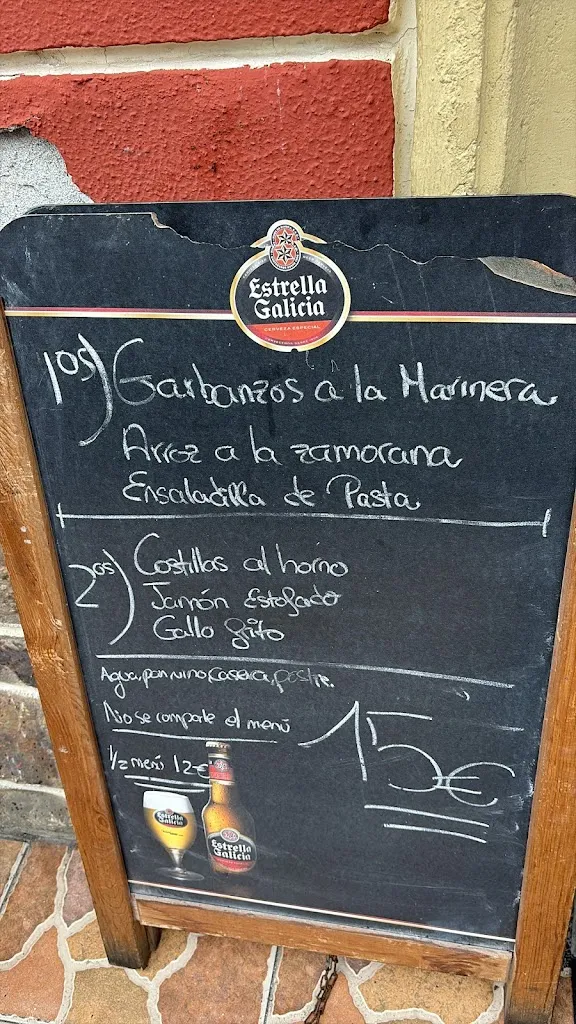 Estrella
Galicia
CERVEZA ESPECIAL
1os) Garbanzos a la Marinera
Arroz a la zamorana
Ensaladilla de Pasta
2os) Costillas al horno
Jamón Estofado
Gallo frito
Agua, pan, vino, casera, postre.
No se comparte el menú
15€
1/2 menú 12€
Estrella
Galicia
Estrella
Galicia